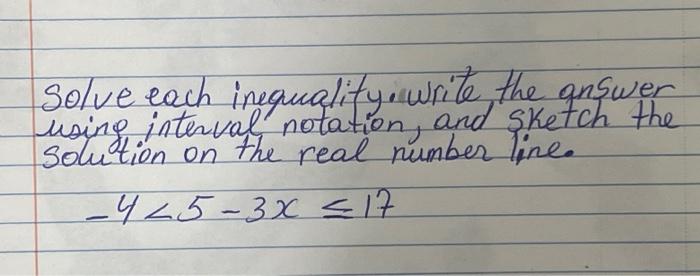 Solve each inequality. write the answer
using interval notation, and sketch the
solution on the real number line.
-4 < 5 - 3x ≤ 17